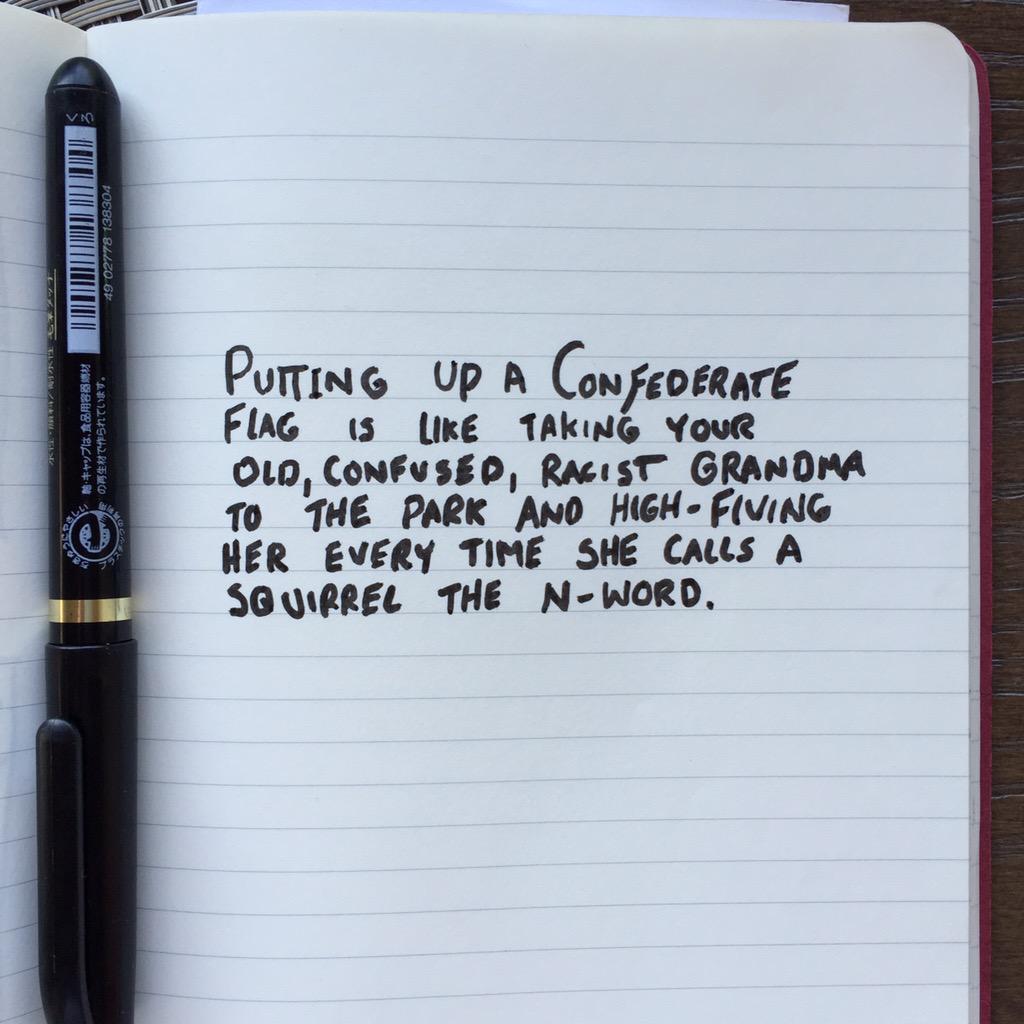 PUTTING UP A CONFEDERATE
FLAG IS LIKE TAKING YOUR
OLD, CONFUSED, RACIST GRANDMA
TO THE PARK AND HIGH-FIVING
HER EVERY TIME SHE CALLS A
SQUIRREL THE N-WORD.
くろ
49 02778 138304
軸・キャップは、食品用容器端材
の再生材で作られています。